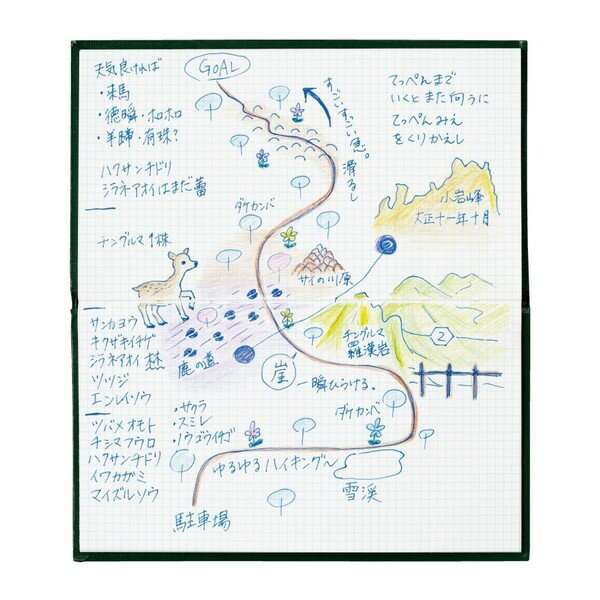 GOAL
天気良ければ
・来馬
・徳瞬・ホロホロ
・羊蹄・有珠？
ハクサンチドリ
シラネアオイはまだ蕾
すごいすごい急。
滑るし
てっぺんまで
いくとまた向うに
てっぺんみえ
をくりかえし
ダケカンバ
小岩峰
大正十一年十月
チングルマ1株
サイの川原
サンカヨウ
キクザキイチゲ
シラネアオイ
ツツジ
エンレイソウ
鹿の道
チングルマ
羅漢岩
2
崖
一瞬ひらける。
ツバメオモト
チシマフウロ
ハクサンチドリ
イワカガミ
マイズルソウ
・サクラ
・スミレ
・ノウゴウイチゴ
ダケカンバ
ゆるゆるハイキング〜
雪渓
駐車場